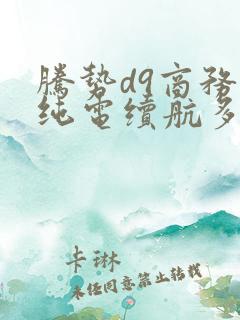 騰勢d9商務
纯電續航多
卡琳
未经同意禁止转载